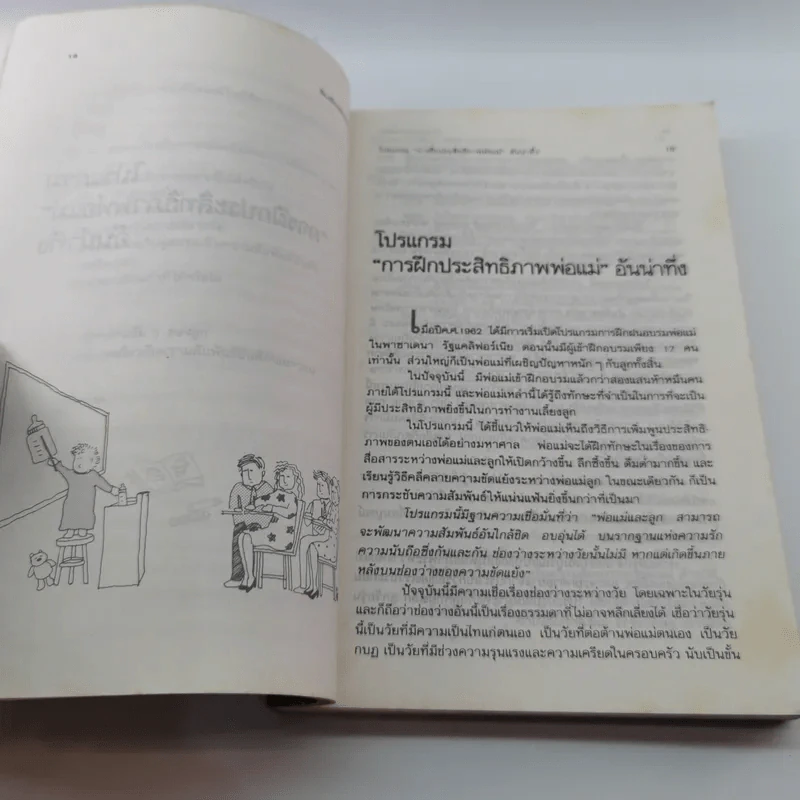 โปรแกรม
"การฝึกประสิทธิภาพพ่อแม่" อันน่าทึ่ง
เมื่อปีค.ศ.1962 ได้มีการเริ่มเปิดโปรแกรมการฝึกฝนอบรมพ่อแม่
ในพาซาเดนา รัฐแคลิฟอร์เนีย ตอนนั้นมีผู้เข้าฝึกอบรมเพียง 17 คน
เท่านั้น ส่วนใหญ่ก็เป็นพ่อแม่ที่เผชิญปัญหาหนัก ๆ กับลูกทั้งสิ้น
ในปัจจุบันนี้ มีพ่อแม่เข้าฝึกอบรมแล้วกว่าสองแสนห้าหมื่นคน
ภายใต้โปรแกรมนี้ และพ่อแม่เหล่านี้ได้รู้ถึงทักษะที่จำเป็นในการที่จะเป็น
ผู้มีประสิทธิภาพยิ่งขึ้นในการทำงานเลี้ยงลูก
ในโปรแกรมนี้ ได้ชี้แนวให้พ่อแม่เห็นถึงวิธีการเพิ่มพูนประสิทธิ-
ภาพของตนเองได้อย่างมหาศาล พ่อแม่จะได้ฝึกทักษะในเรื่องของการ
สื่อสารระหว่างพ่อแม่และลูกให้เปิดกว้างขึ้น ลึกซึ้งขึ้น ดื่มด่ำมากขึ้น และ
เรียนรู้วิธีคลี่คลายความขัดแย้งระหว่างพ่อแม่ลูก ในขณะเดียวกัน ก็เป็น
การกระชับความสัมพันธ์ให้แน่นแฟ้นยิ่งขึ้นกว่าที่เป็นมา
โปรแกรมนี้มีฐานความเชื่อมั่นที่ว่า "พ่อแม่และลูก สามารถ
จะพัฒนาความสัมพันธ์อันใกล้ชิด อบอุ่นได้ บนรากฐานแห่งความรัก
ความนับถือซึ่งกันและกัน ช่องว่างระหว่างวัยนั้นไม่มี หากแต่เกิดขึ้นภาย
หลังบนช่องว่างของความขัดแย้ง"
ปัจจุบันนี้มีความเชื่อเรื่องช่องว่างระหว่างวัย โดยเฉพาะในวัยรุ่น
และก็ถือว่าช่องว่างอันนี้เป็นเรื่องธรรมดาที่ไม่อาจหลีกเลี่ยงได้ เชื่อว่าวัยรุ่น
นี้เป็นวัยที่มีความเป็นไทแก่ตนเอง เป็นวัยที่ต่อต้านพ่อแม่ตนเอง เป็นวัย
กบฏ เป็นวัยที่มีช่วงความรุนแรงและความเครียดในครอบครัว นับเป็นขั้น